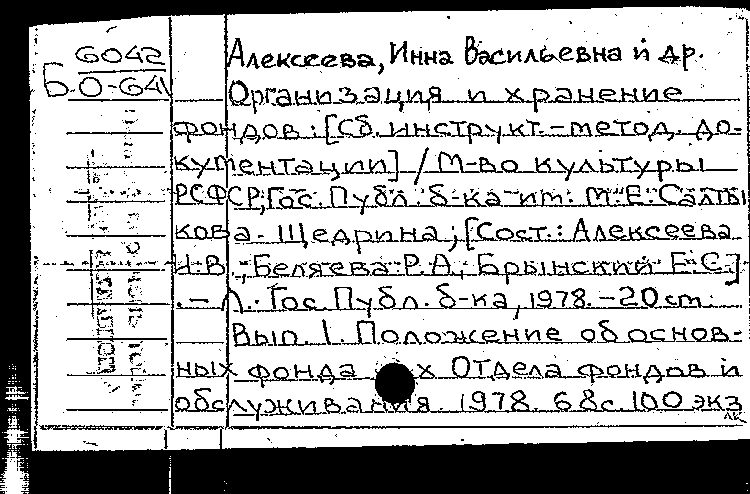 6042
Б.О-641
Алексеева, Инна Васильевна и др.
Организация и хранение
фондов: [Сб. инструкт.-метод. до-
кументации] / М-во культуры
РСФСР, Гос. Публ. б-ка им. М.Е. Салты
кова-Щедрина; [Сост.: Алексеева
И.В., Беляева Р.А., Брынский Е.С.]
.-Л.: Гос. Публ. б-ка, 1978.-20 см.
Вып. 1. Положение об основ-
ных фонда х Отдела фондов и
обслуживания. 1978. 68с. 100 экз